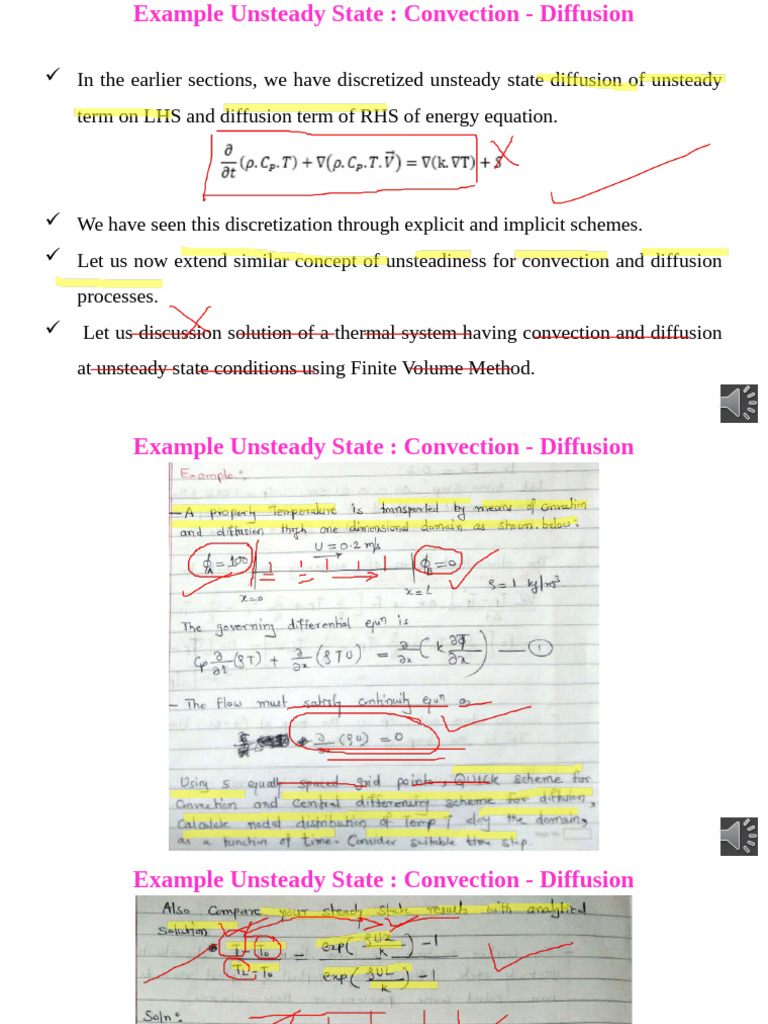 Example Unsteady State : Convection - Diffusion
✓ In the earlier sections, we have discretized unsteady state diffusion of unsteady
term on LHS and diffusion term of RHS of energy equation.
∂/∂t (ρ.C_P.T) + ∇(ρ.C_P.T.V⃗) = ∇(k.∇T) + S
✓ We have seen this discretization through explicit and implicit schemes.
✓ Let us now extend similar concept of unsteadiness for convection and diffusion
processes.
✓ Let us discussion solution of a thermal system having convection and diffusion
at unsteady state conditions using Finite Volume Method.
Example Unsteady State : Convection - Diffusion
Example:
- A property Temperature is transported by means of convection
and diffusion thrgh one dimensional domain as shown below:
U = 0.2 m/s
ϕ_A = 100
ϕ_B = 0
x=0
x=L
ρ = 1 kg/m³
The governing differential equn is
Cp ∂/∂t (ρT) + ∂/∂x (ρTU) = ∂/∂x (k ∂T/∂x) — ①
- The flow must satisfy continuity equn as
∂/∂x (ρu) = 0
Using 5 equally spaced grid points, QUICK scheme for
Convection and Central differencing scheme for diffusion,
Calculate nodal distribution of Temp T along the domain,
as a function of time. Consider suitable time step.
Example Unsteady State : Convection - Diffusion
Also Compare your steady state results with analytical
Solution
T - T₀ / T_L - T₀ = exp(ρUx/k) - 1 / exp(ρUL/k) - 1
Soln: